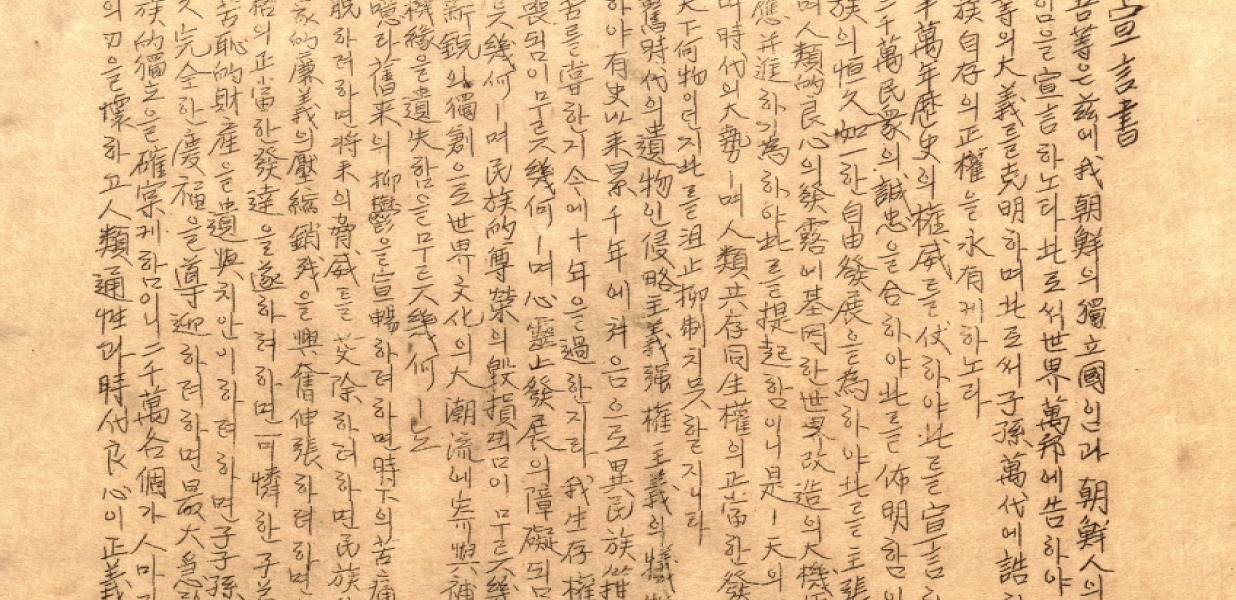 宣言書
吾等은玆에我朝鮮의獨立國인과朝鮮人의
임을宣言하노라此로써世界萬邦에告하야
等의大義를克明하며此로써子孫萬代에誥
族自存의正權을永有케하노라
半萬年歷史의權威를仗하야此를宣言
二千萬民衆의誠忠을合하야此를佈明함이
族의恒久如一한自由發展을為하야此를主張
며人類的良心의發露에基因한世界改造의大機
應幷進하기為하야此를提起함이니是ㅣ天의
며時代의大勢ㅣ며人類共存同生權의正當한發
天下何物이던지此를沮止抑制치못할지니라
舊時代의遺物인侵略主義强權主義의犧
하야有史以來累千年에처음으로異民族箝
苦를嘗한지今에十年을過한지라我生存權
喪됨이무릇幾何ㅣ며心靈上發展의障礙됨
릇幾何ㅣ며民族的尊榮의毀損됨이무릇幾
新銳와獨創으로世界文化의大潮流에寄與補
機緣을遺失함을무릇幾何ㅣ뇨
噫라舊來의抑鬱을宣暢하려하면時下의苦痛
脫하려하면將來의脅威를芟除하려하면民族
家的廉義의壓縮銷殘을興奮伸張하려하면
格의正當한發達을遂하려하면可憐한子弟
苦恥的財産을遺與치안이하려하면子子孫
久完全한慶福을導迎하려하면最大急
族的獨立을確實케함이니二千萬各個가人마다
의刃을懷하고人類通性과時代良心이正義